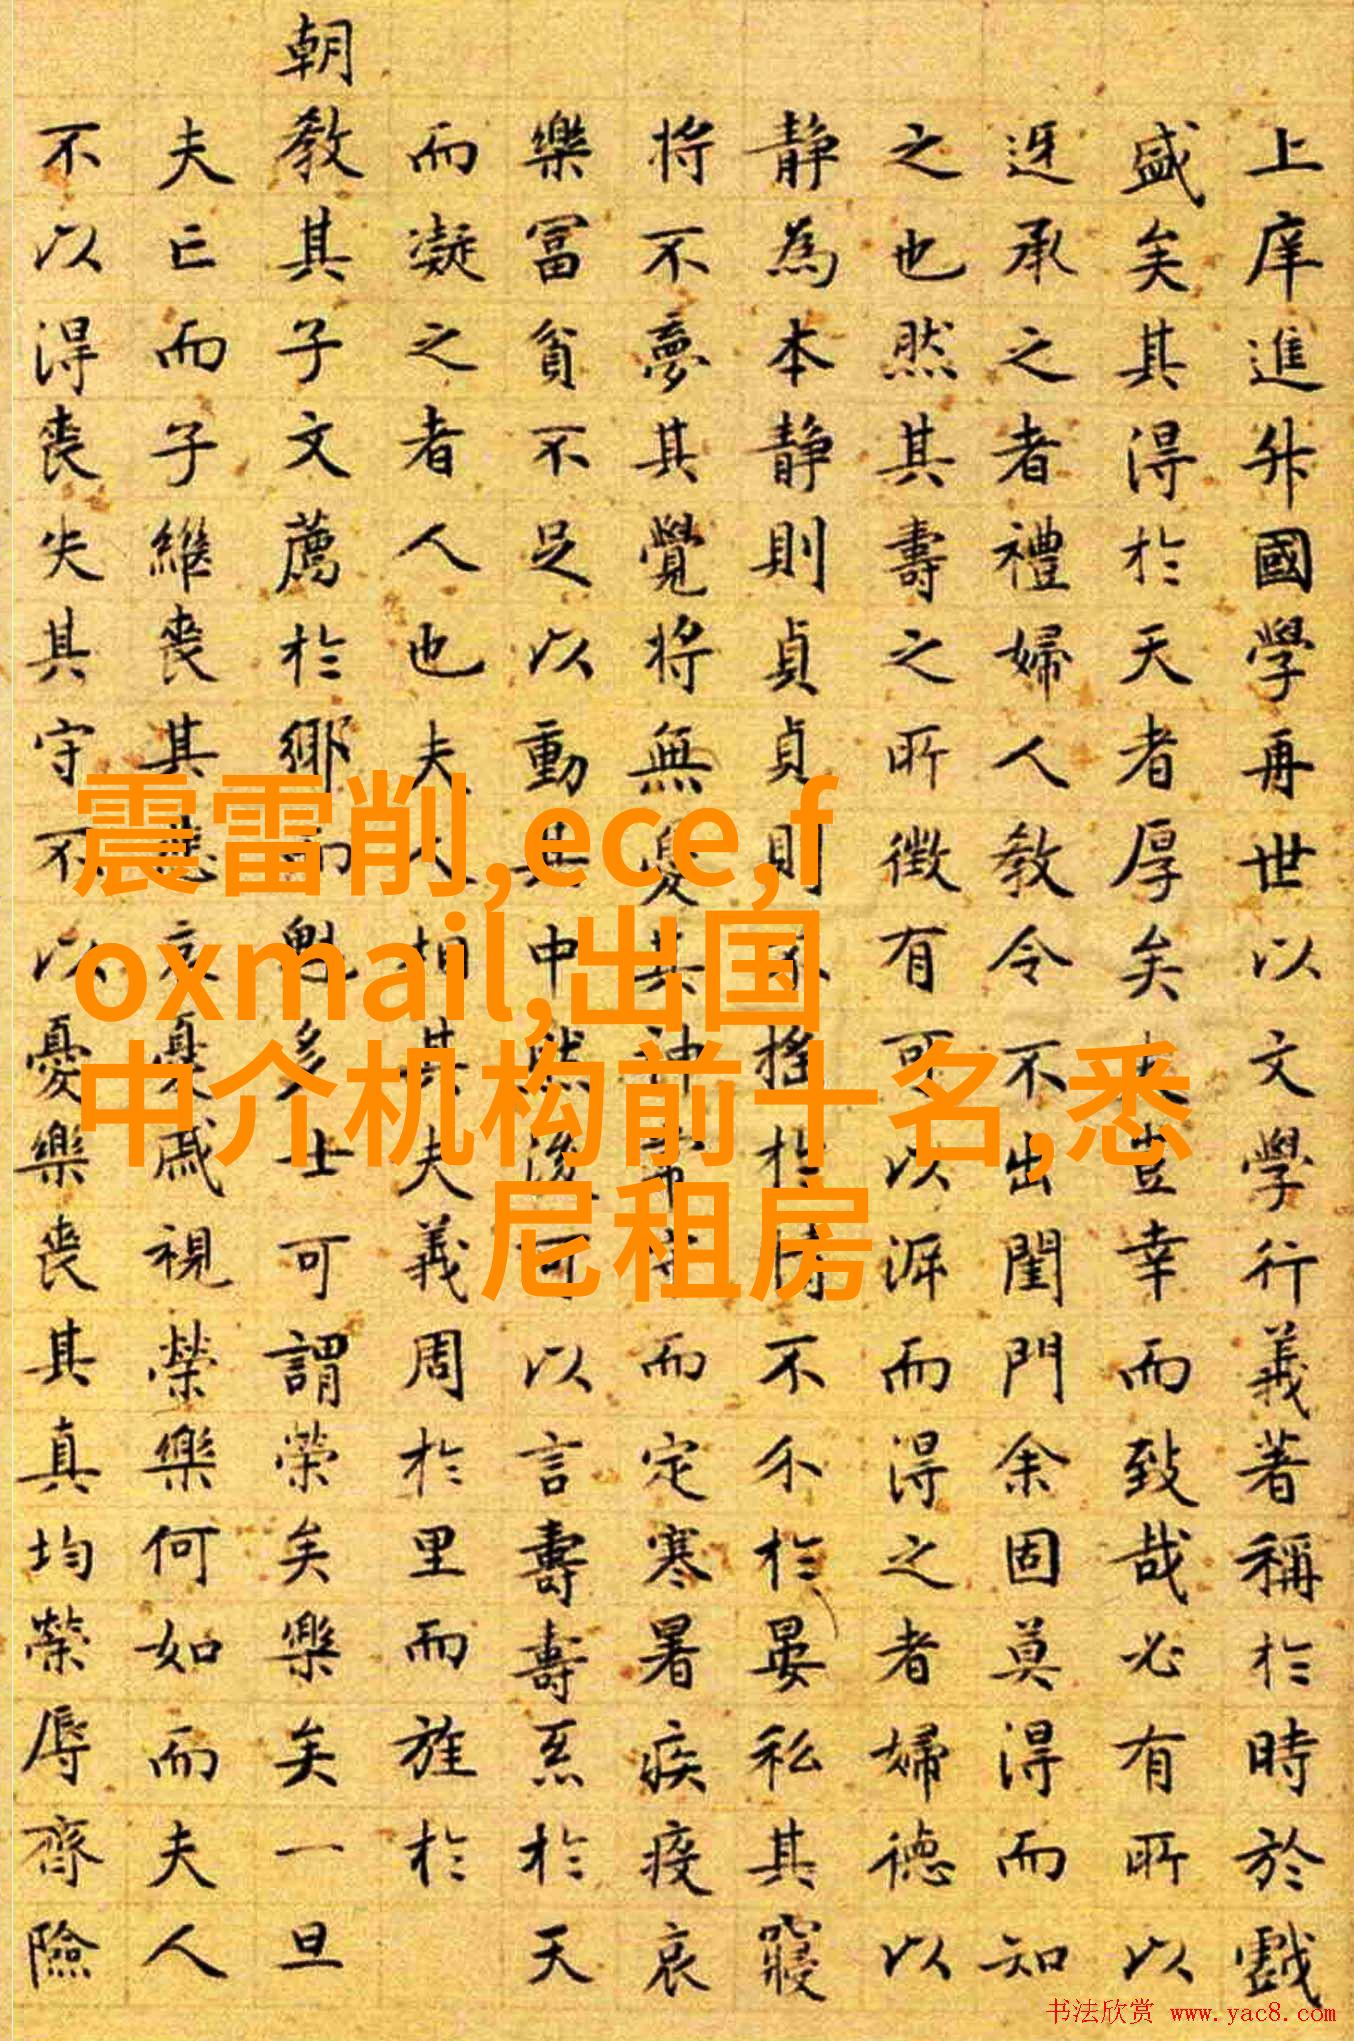 上庠進升國學再世以文學行義著稱於時於戲
盛矣其得於天者厚矣夫豈幸而致哉必有所以
迓承之者禮婦人教令不出閨門余固莫得而知
之也然其壽之所徵有可以泝而得之者婦德以
静為本静則貞貞則不搖於時不介於晏私其寢
将不夢其覺将無憂其神常守而定寒暑疾疫哀
樂冨貧不足以動其中然後可以言壽壽系於天
而凝之者人也夫人相其夫義周於里而旌於
朝教其子文薦於鄉而魁多士可謂榮矣樂矣一旦
夫亡而子繼喪其悲哀憂戚視榮樂何如而夫人
不以得喪失其守不以憂樂喪其真均榮辱齊險
震雷削,ece,f
oxmail,出国
中介机构前十名,悉
尼租房
书法欣赏 www.yac8.com